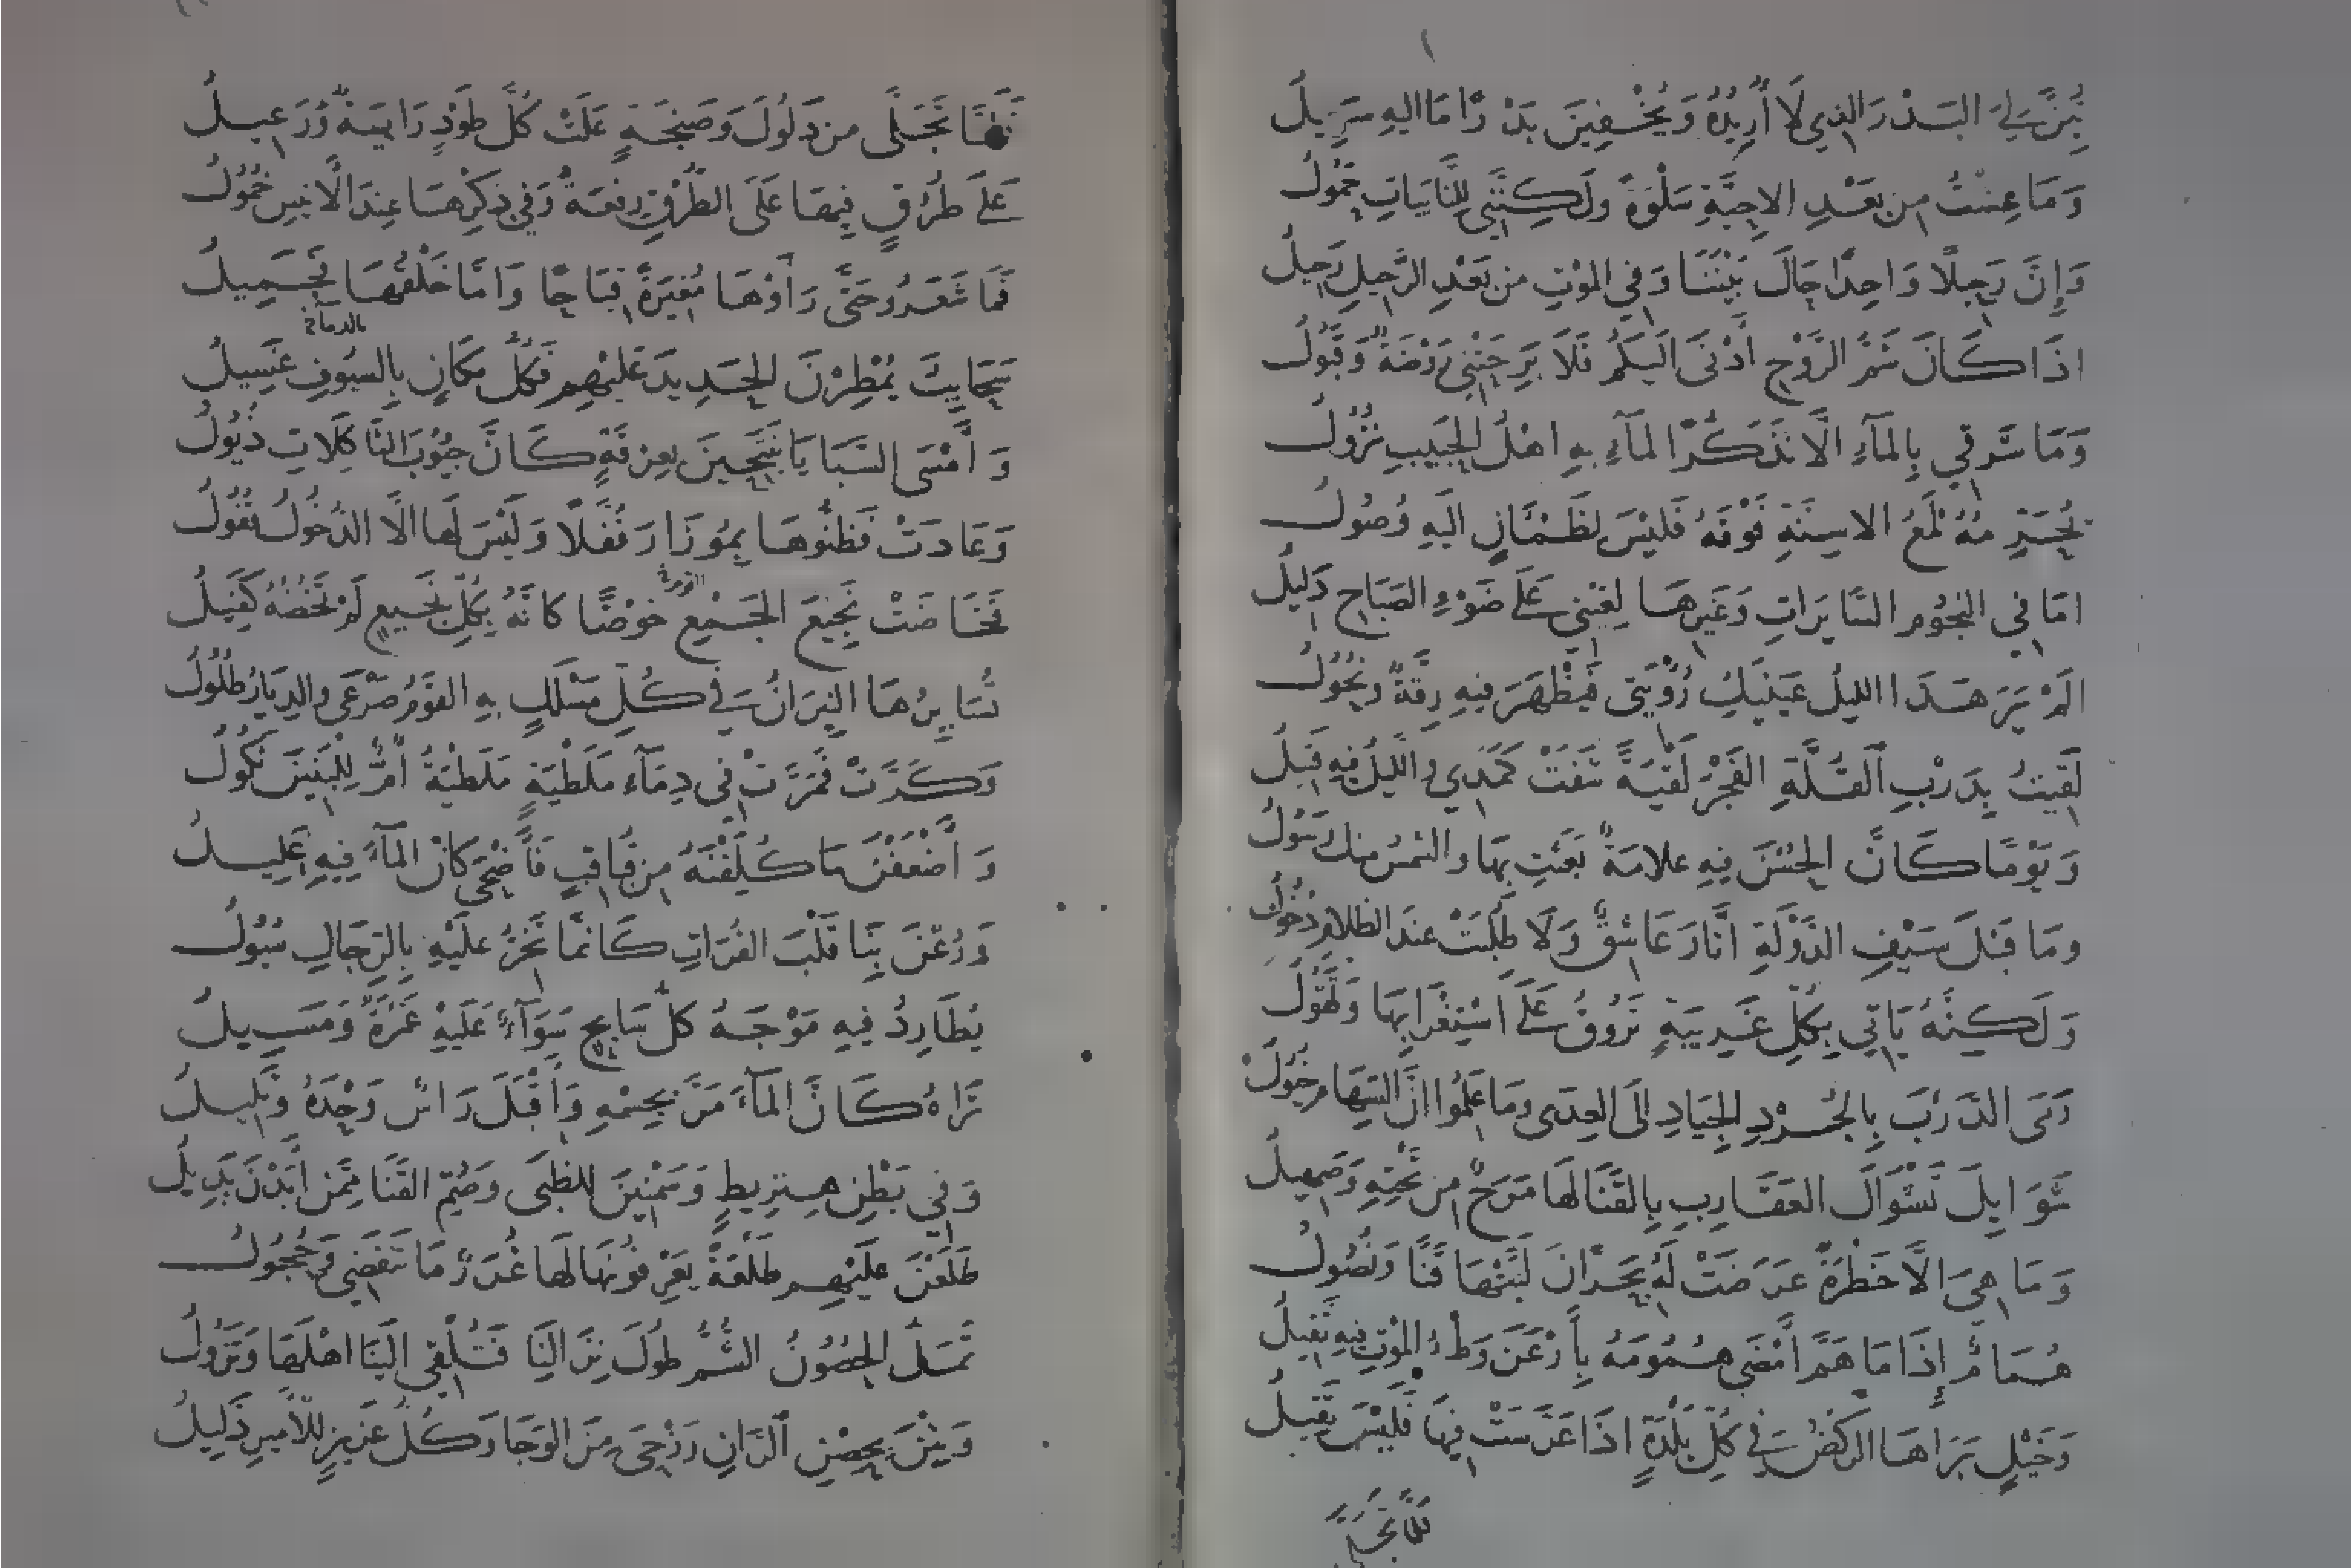 يُبِنَّ لِيَ البَدْرَ الذي لَا أُرِيدُهُ وَيُخْفِينَ بَدْرًا مَا اليهِ سَبِيلُ
وَمَا عِشْتُ مِن بَعْدِ الاحِبَّةِ سَلْوَةً ولَكِنَّنِي لِلنَّايِبَاتِ حَمُولُ
وَإِنَّ رَحِيلًا وَاحِدًا حَالَ بَيْنَنَا وَفِي المَوْتِ من بَعْدِ الرَّحِيلِ رَحِيلُ
اذَا كَانَ شَمُّ الرَّوْحِ أَدْنَى الَيكُمُ فَلَا بَرِحَتْنِي رَوْضَةٌ وَقَبُولُ
وَمَا شَرَقِي بِالمَآءِ الَّا تَذَكُّرًا لمَآءٍ بِهِ اهْلُ الحَبِيبِ نُزُولُ
يُحَرِّمُهُ لَمْعُ الاسِنَّةِ فَوْقَهُ فَلَيْسَ لِظَمْآنٍ الَيهِ وُصُولُ
امَا فِي النُجُومِ السَّايِرَاتِ وَغَيرِهَا لِعَيْنِي عَلَى ضَوْءِ الصَبَاحِ دَلِيلُ
الَمْ يَرَ هَذَا الليلُ عَيْنَيكِ رُؤْيَتِي فَيَظْهَرَ فيهِ رِقَّةٌ ونُحُولُ
لَقِيتُ بِدَرْبِ القُلَّةِ الفَجْرَ لَقْيَةً شَفَتْ كَمَدِي والليلُ فيهِ قَتِيلُ
وَيَوْمًا كَانَّ الحُسْنَ فِيهِ علامَةٌ بَعَثتِ بِهَا والشمسُ منكِ رَسُولُ
ومَا قَبْلَ سَيْفِ الدَوْلَةِ اثَّارَ عَاشِقٌ وَلَا طُلِبَتْ عندَ الظلامِ ذُحُولُ
وَلَكِنَّهُ يَاتِي بِكُلِّ غَرِيبَةٍ تَرُوقُ عَلَى اسْتِغْرَابِهَا وَتَهُولُ
رَمَى الدَرْبَ بِالجُرْدِ الجِيَادِ الَى العِدَى ومَا عَلِمُوا انَّ السِهَامَ خُيُولُ
شَوَايِلَ تَشْوَالَ العَقَارِبِ بِالقَنَا لَهَا مَرَحٌ مِن تَحْتِهِ وَصَهِيلُ
وَمَا هِيَ الَّا خَطْرَةٌ عَرَضَتْ لَهُ بِحَرَّانَ لَبَّتْهَا قَنًا وَنُصُولُ
هُمَامٌ إِذَا مَا هَمَّ أَمْضَى هُمُومَهُ بِأَرْعَنَ وَطْءُ المَوْتِ فِيهِ ثَقِيلُ
وَخَيْلٍ بَرَاهَا الرَكْضُ فِي كُلِّ بَلْدَةٍ اذَا عَرَّسَتْ فِيهَا فَلَيْسَ تَقِيلُ
فَلَمَّا تَجَلَّى
فَلَمَّا تَجَلَّى من دَلُوكَ وَصَنجَةٍ عَلَتْ كُلَّ طَوْدٍ رَايةٌ وَرَعِيلُ
عَلَى طُرُقٍ فِيهَا عَلَى الطُرْقِ رِفْعَةٌ وَفِي ذِكْرِهَا عِندَ الانِيسِ خُمُولُ
فَمَا شَعَرُوا حَتَّى رَأَوْهَا مُغِيرَةً قِبَاحًا وَامَّا خَلْقُهَا فَجَمِيلُ
سَحَايِبَ يُمْطِرْنَ الحَدِيدَ عَلَيْهِم فَكُلُّ مَكَانٍ بِالسُيُوفِ غَسِيلُ
وَأَمْسَى السَّبَايَا يَنتَحِبْنَ بِعِرْقَةٍ كَانَّ جُيُوبَ الثَّاكِلَاتِ ذُيُولُ
وَعَادَتْ فَظَنُّوهَا بِمَوْزَارَ قُفَّلًا وَلَيْسَ لَهَا الَّا الدُخُولُ قُفُولُ
فَخَاضَتْ نَجِيعَ الجَمْعِ خَوْضًا كَانَّهُ بِكُلِّ نَجِيعٍ لَمْ تَخُضْهُ كَفِيلُ
تُسَايِرُهَا النِيرَانُ فِي كُلِّ مَسْلَكٍ بِهِ القَوْمُ صَرْعَى والدِيَارُ طُلُولُ
وَكَرَّتْ فَمَرَّتْ فِي دِمَآءِ مَلَطْيَةٍ مَلَطْيَةُ أُمٌّ لِلْبَنِينَ ثَكُولُ
وَأَضْعَفْنَ مَا كُلِّفْنَهُ مِن قُبَاقِبٍ فَأَضْحَى كَانَّ المَآءَ فِيهِ عَلِيلُ
وَرُعْنَ بِنَا قَلْبَ الفُرَاتِ كَانَّمَا تَخِرُّ عَلَيْهِ بِالرِجَالِ سُيُولُ
يُطَارِدُ فِيهِ مَوْجَهُ كُلُّ سَابِحٍ سَوَآءٌ عَلَيْهِ غَمْرَةٌ وَمَسِيلُ
تَرَاهُ كَانَّ المَآءَ مَرَّ بِجِسْمِهِ وَأَقْبَلَ رَاسٌ وَحْدَهُ وَتَلِيلُ
وَفِي بَطْنِ هِنزِيطٍ وَسِمْنِينَ لِلظُبَى وَصُمِّ القَنَا مِمَّنْ أَبَدْنَ بَدِيلُ
طَلَعْنَ عَلَيْهِم طَلْعَةً يَعْرِفُونَهَا لَهَا غُرَرٌ مَا تَنقَضِي وَحُجُولُ
تَمَلُّ الحُصُونُ الشُمُّ طُولَ نِزَالِنَا فَتُلْقِي الَيْنَا اهْلَهَا وَتَزُولُ
وَبِتْنَ بِحِصْنِ الرَانِ رَزْحَى مِنَ الوَجَا وَكُلُّ عَزِيزٍ لِلأَمِيرِ ذَلِيلُ